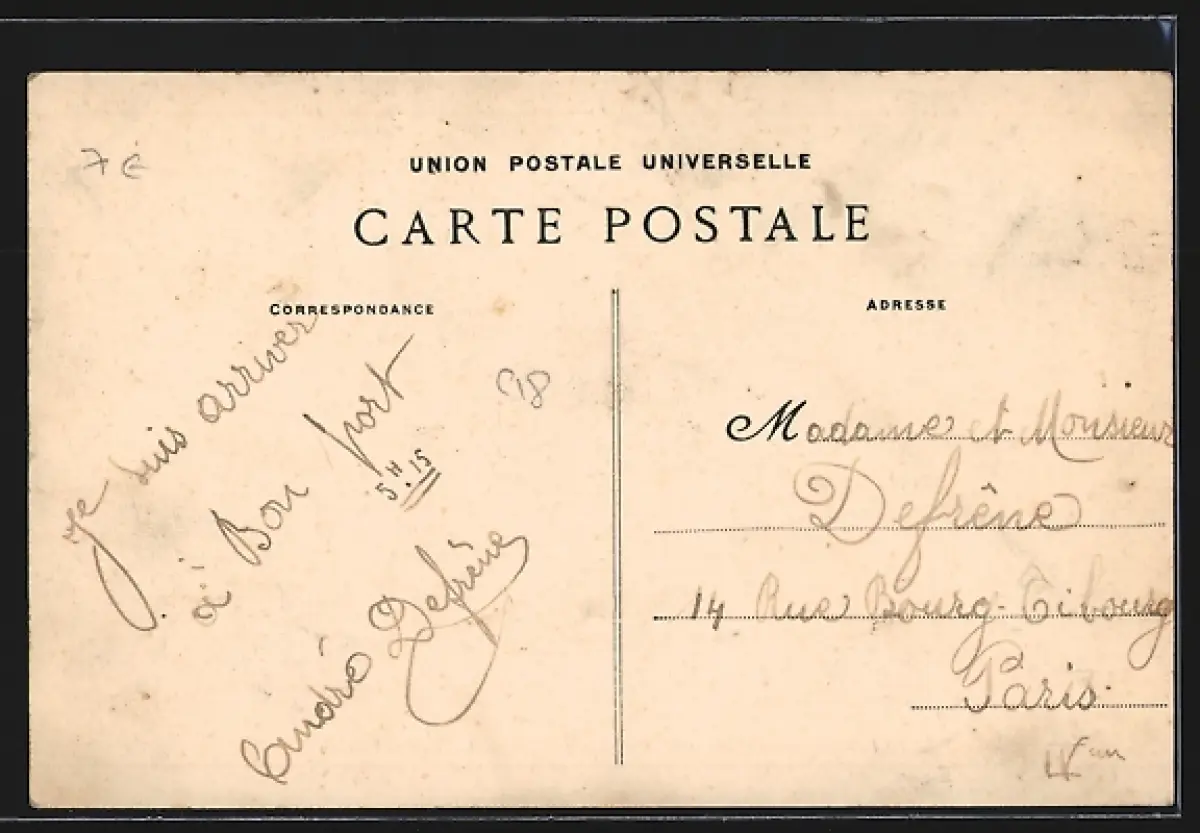 7 €
UNION POSTALE UNIVERSELLE
CARTE POSTALE
CORRESPONDANCE
Je suis arriver
à Bon port
5H.15
André Defrêne
98
ADRESSE
Madame et Monsieur
Defrêne
14 Rue Bourg-Tibourg
Paris.